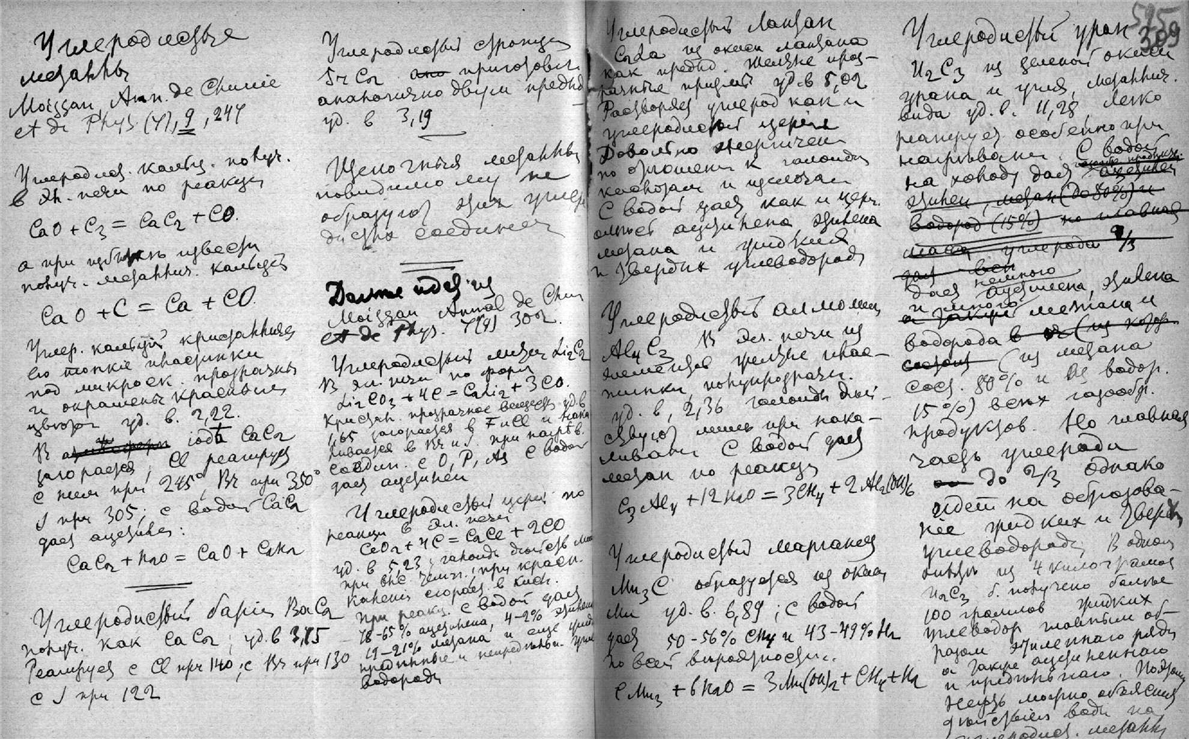 Углеродистые
металлы
Moissan, Ann. de Chimie
et de Phys. (7), 9, 247
Углеродис. кальц. получ.
в эл. печи по реакции
CaO + C3 = CaC2 + CO.
а при избытке извести
получ. металлич. кальций
CaO + C = Ca + CO.
Углер. кальций кристаллич.
тонкие пластинки
под микроск. прозрачны
и окрашены красивым
цветом уд. в. 2,22.
В годе CaC2
загорается; Cl реагирует
с ним при 245° Br при 350°
J при 305; с водой CaC2
дает ацетилен:
CaC2 + H2O = CaO + C2H2
Углеродистый барий BaC2
получ. как CaC2; уд. в 3,75
Реагирует с Cl при 140, с Br при 130
с J при 122
Углеродистый стронций
SrC2 приготовл.
аналогично двум предыд.
уд. в 3,19
Щелочные металлы
повидимому не
образуют этих углеро
дистых соединен.
Далее идет из
Moissan Annal de Chim
et de Phys. 7(9) 302.
Углеродистый литий Li2C2
В эл. печи по форм
Li2CO3 + 4C = C2Li2 + 3CO.
Кристал. прозрачное вещество уд. в
1,65 загорается в F и Cl и
в Br и J. при нагрев.
соедин. с O, P, As с водой
дает ацетилен
Углеродистый церий по
реакции в эл. печи
CeO2 + 4C = CeC2 + 2CO
уд. в 5,23; галоиды действ.
при выс. темп., при красн.
калении сгорает в кисл.
при реакц. с водой дает
78-65% ацетилена, 4-2% этилена
19-21% метана и еще
предельные и непредельн. угле
водороды
Углеродистый лантан
C2La из окиси лантана
как предыд. Желтые проз-
рачные уд. в 5,02
Растворяет углерод как и
углеродистый церий
Довольно энергичен
по отношени к галоидам
кислотам и щелочам
С водой дает как и цер.
смесь ацетилена этилена
метана и жидкия
и твердыя углеводород
Углеродистый алломин
Al4C3 В эл. печи из
элементов желтые плас-
тинки полупрозрачн.
уд. в. 2,36 галоиды дей-
ствуют лишь при нака-
ливани С водой дает
метан по реакции
C3Al4 + 12H2O = 3CH4 + 2Al2(OH)6
Углеродистый марганец
Mn3C образуется из окиси
Mn уд. в. 6,89; с водой
дает 50-56% CH4 и 43-49% H2
по всей вероятности..
CMn3 + 6H2O = 3Mn(OH)2 + CH4 + H2
595
309
Углеродистый уран
U2C3 из зеленой окиси
урана и угля, металлич.
вида уд. в. 11,28 легко
реагирует особенно при
нагревани. С водой
на холоду дает ацетилен
этилен, метан (до 80%) и
водород (15%) но главная
углерода 2/3
все
дает немного ацетилена, этилена
и много
а также метана и
водорода в
(из метана
сост. 80% и из водор.
15%) всех газообр.
продуктов. Но главная
часть углерода
до 2/3 однако
идет на образова-
ние жидких и тверды
углеводород; В одном
опыте из 4 килограмов
U2C3 б. получено больше
100 граммов жидких
углеводор главным об-
разом этиленнаго ряда
а также ацетиленнаго
и предельнаго. Поэтому
нефть можно объяснить
действием воды на
углеродис. металлы